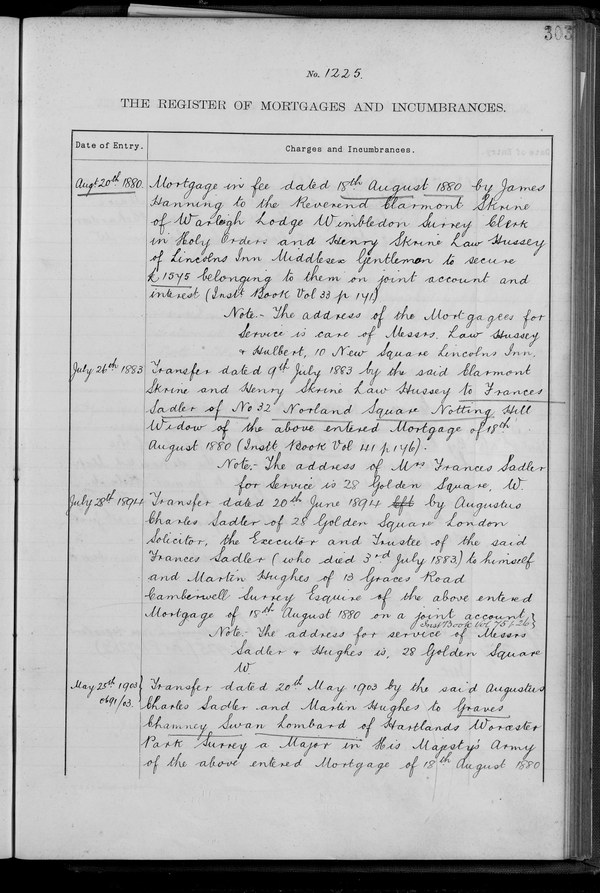 303
No. 1225.
THE REGISTER OF MORTGAGES AND INCUMBRANCES.
Date of Entry. Charges and Incumbrances.
Augt 20th 1880. Mortgage in fee dated 18th August 1880 by James
Hanning to the Reverend Clarmont Skrine
of Warleigh Lodge Wimbledon Surrey Clerk
in Holy Orders and Henry Skrine Law Hussey
of Lincolns Inn Middlesex Gentleman to secure
£1545 belonging to them on joint account and
interest (Instt Book Vol 33 p 141)
Note.- The address of the Mortgagees for
Service is care of Messrs. Law Hussey
& Hulbert, 10 New Square Lincolns Inn.
July 26th 1883 Transfer dated 9th July 1883 by the said Clarmont
Skrine and Henry Skrine Law Hussey to Frances
Sadler of No 32 Norland Square Notting Hill
Widow of the above entered Mortgage of 18th
August 1880 (Instt Book Vol 41 p 146).
Note.- The address of Mrs Frances Sadler
for Service is 28 Golden Square, W.
July 28th 1894 Transfer dated 20th June 1894 by Augustus
Charles Sadler of 28 Golden Square London
Solicitor, the Executor and Trustee of the said
Frances Sadler (who died 3rd July 1883) to himself
and Martin Hughes of 13 Graces Road
Camberwell Surrey Esquire of the above entered
Mortgage of 18th August 1880 on a joint account
Inst Book Vol 75 p. 26}
Note.- The address for service of Messrs
Sadler & Hughes is, 28 Golden Square
W.
May 25th 1903} Transfer dated 20th May 1903 by the said Augustus
0691/03. Charles Sadler and Martin Hughes to Graves
Chamney Swan Lombard of Hartlands Worcester
Park Surrey a Major in His Majesty's Army
of the above entered Mortgage of 18th August 1880